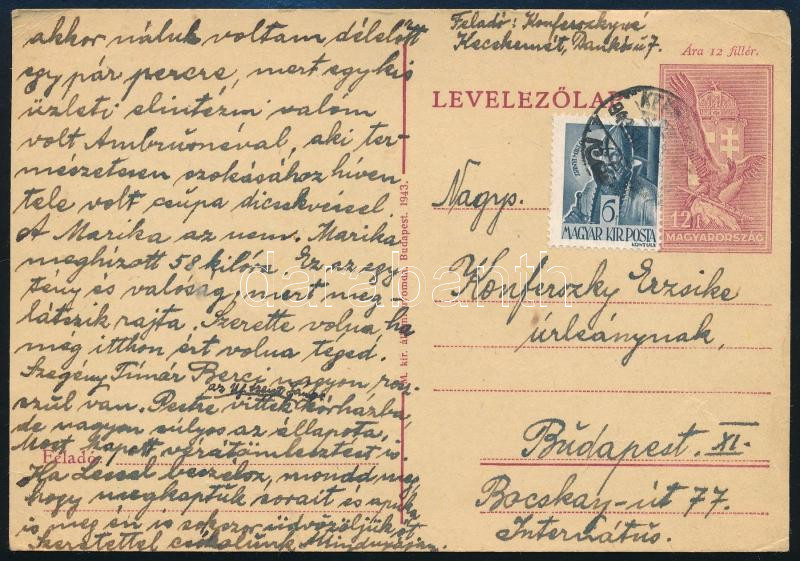 akkor náluk voltam délelőtt
egy pár percre, mert egy kis
üzleti elintézni valóm
volt Ambrusnéval, aki ter-
mészetesen szokásához híven
tele volt csupa dicsekvéssel.
A Marika az nem. Marika
meghízott 58 kilóra. Ez az egy
tény és valóság, mert meg-
látszik rajta. Szerette volna, ha
még itthon ért volna téged.
Szegény Tímár Berci nagyon ros-
szul van. Pestre vitték kórházba
az Új Szent János
de nagyon súlyos az állapota,
Most kapott vérátömlesztést is.
Ha beszélsz, mondd meg
hogy megkaptuk sorait és
is meg én is sokszor üdvözöljük
Szeretettel csókolunk Mindnyájan.
Feladó:
M. kir. állami nyomda, Budapest. 1943.
Feladó: Konferszkyné
Kecskemét, Dankó u 7.
Ára 12 fillér.
LEVELEZŐLAP
6
MAGYAR KIR. POSTA
12f
MAGYARORSZÁG
Nagys.
Konferszky Erzsike
úrleánynak,
Budapest. XI.
Bocskay-út 77.
Internátus.
darabanth